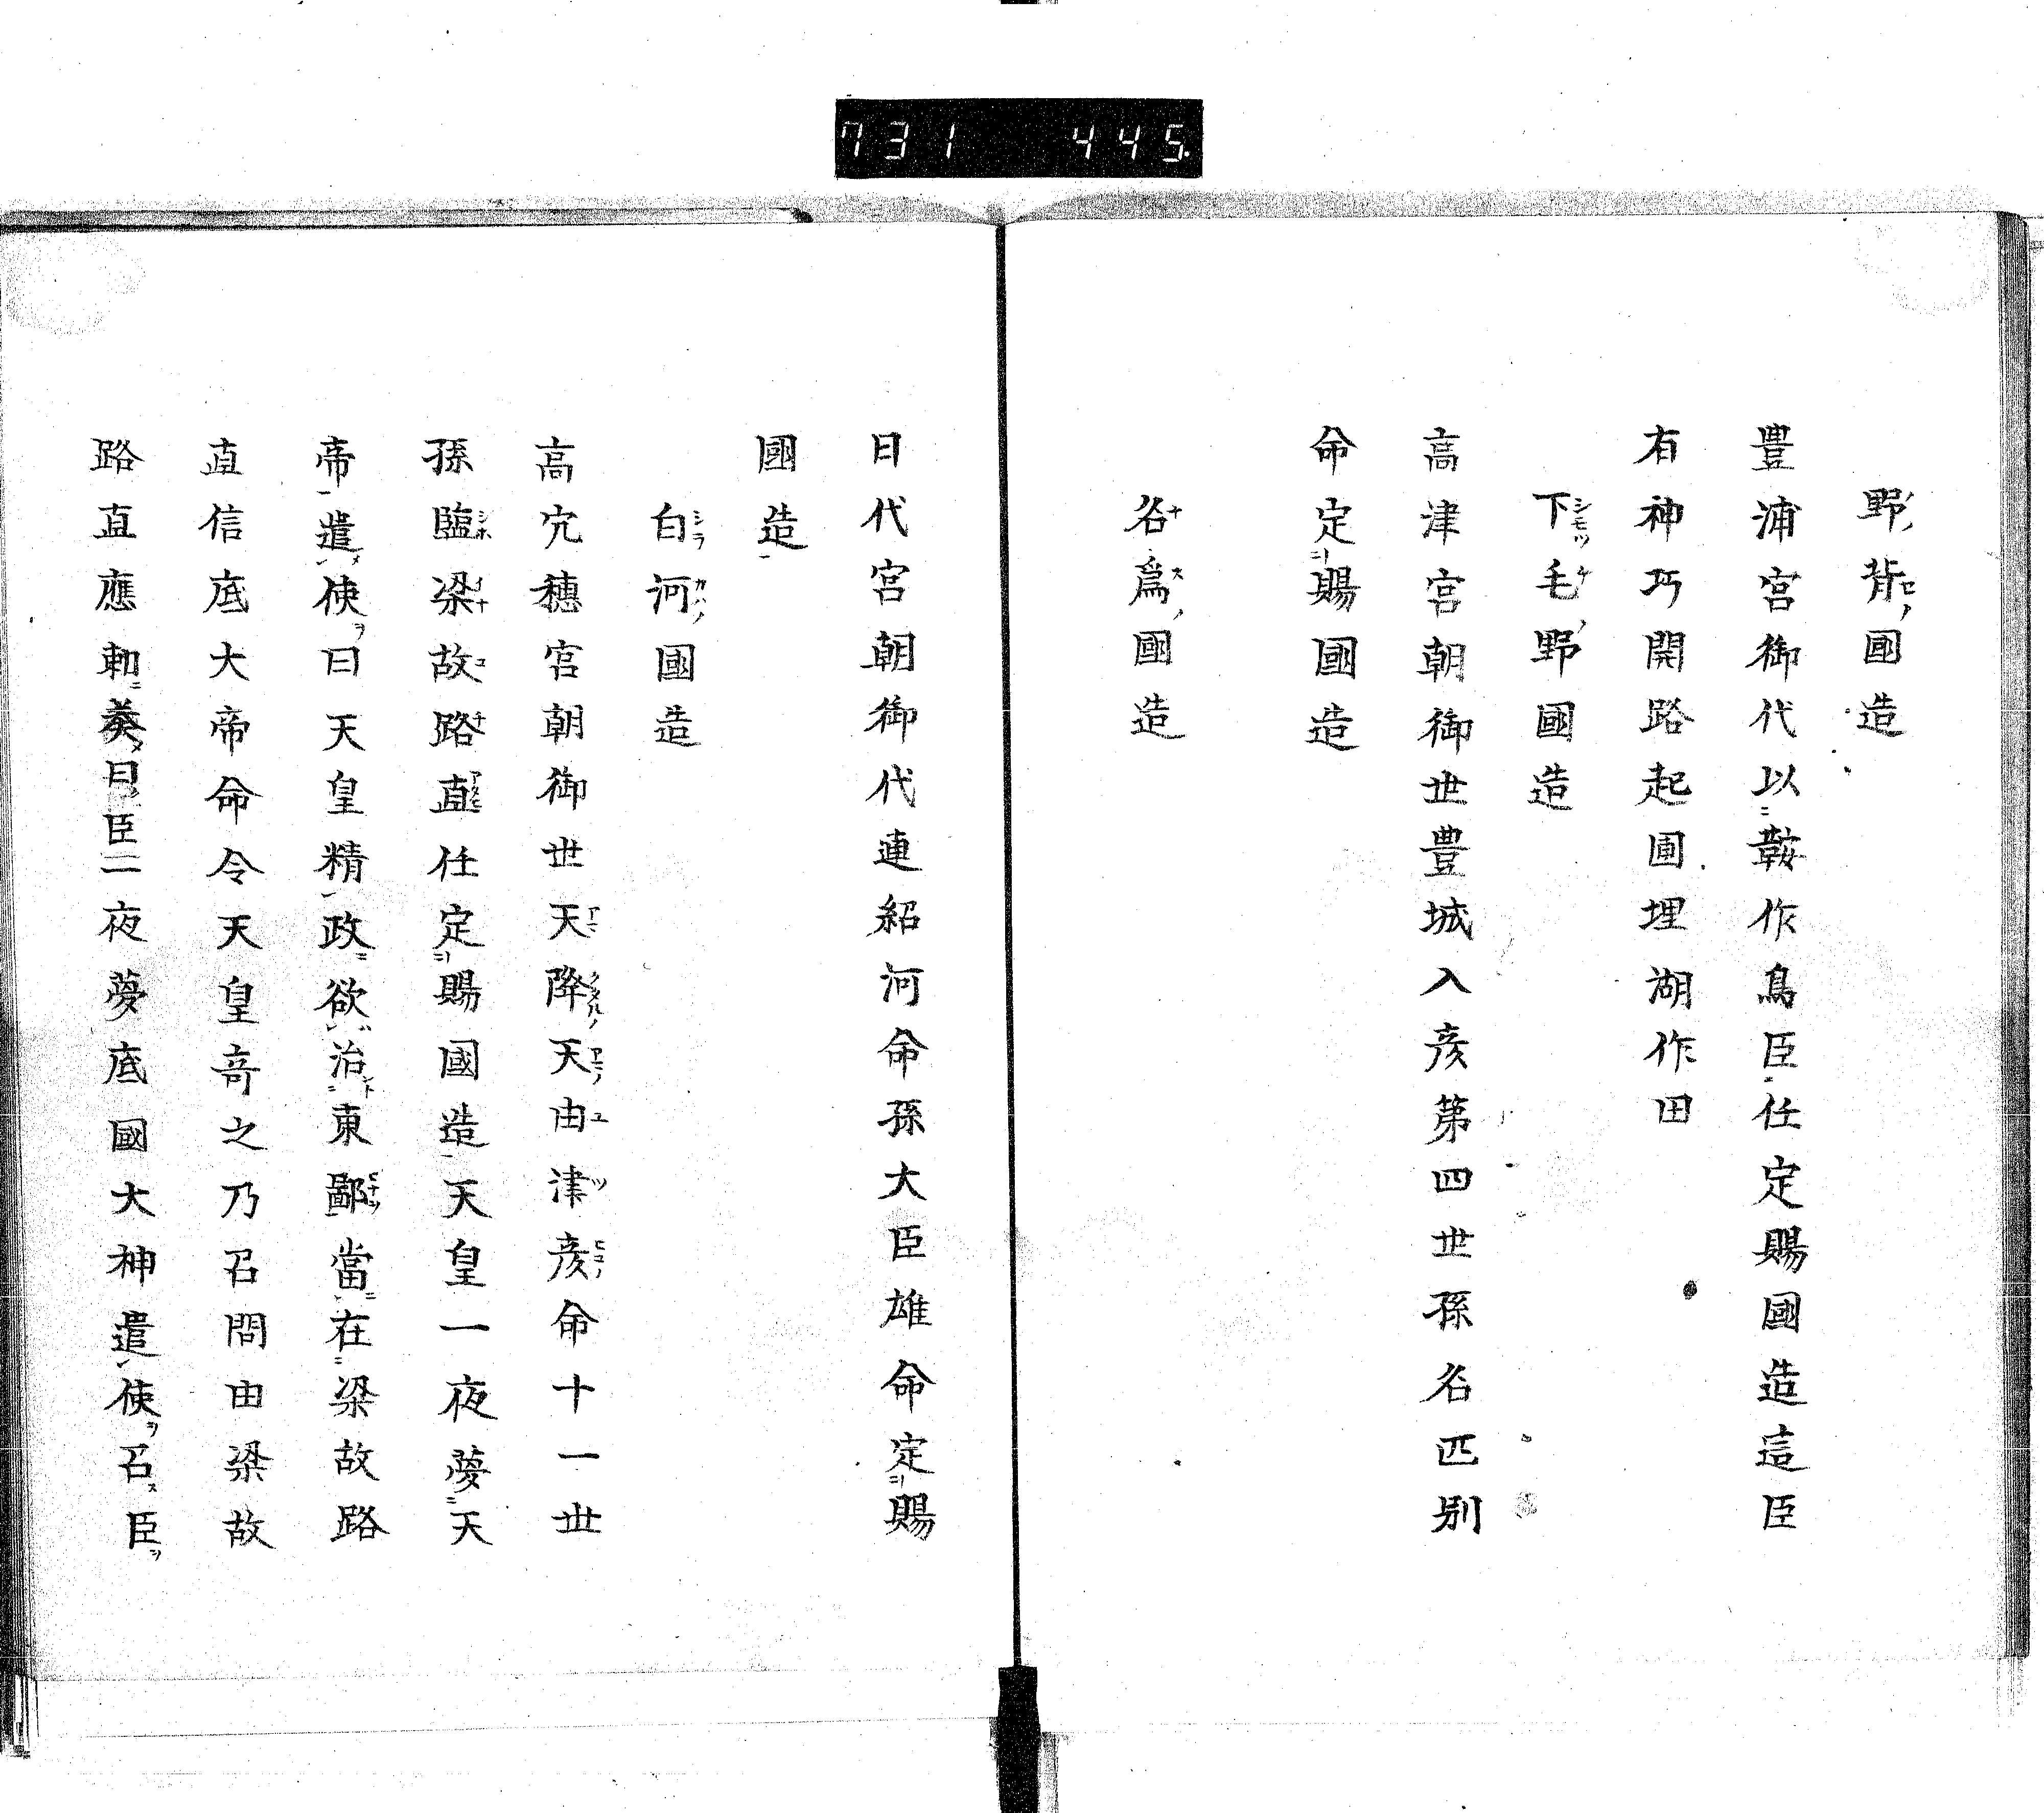 731 445
野背國造
豊浦宮御代以鞍作鳥臣任定賜國造這臣
有神巧開路起圃埋湖作田
下毛野國造
高津宮朝御世豊城入彦第四世孫名匹別
命定賜國造
名爲國造
日代宮朝御代連紹河命孫大臣雄命定賜
國造
白河國造
高穴穗宮朝御世天降天由津彦命十一世
孫鹽梁故路直任定賜國造天皇一夜夢天
帝遣使曰天皇精政欲治東鄙當在梁故路
直信底大帝命令天皇奇之乃召問由梁故
路直應勅奏曰臣二夜夢底國大神遣使召臣